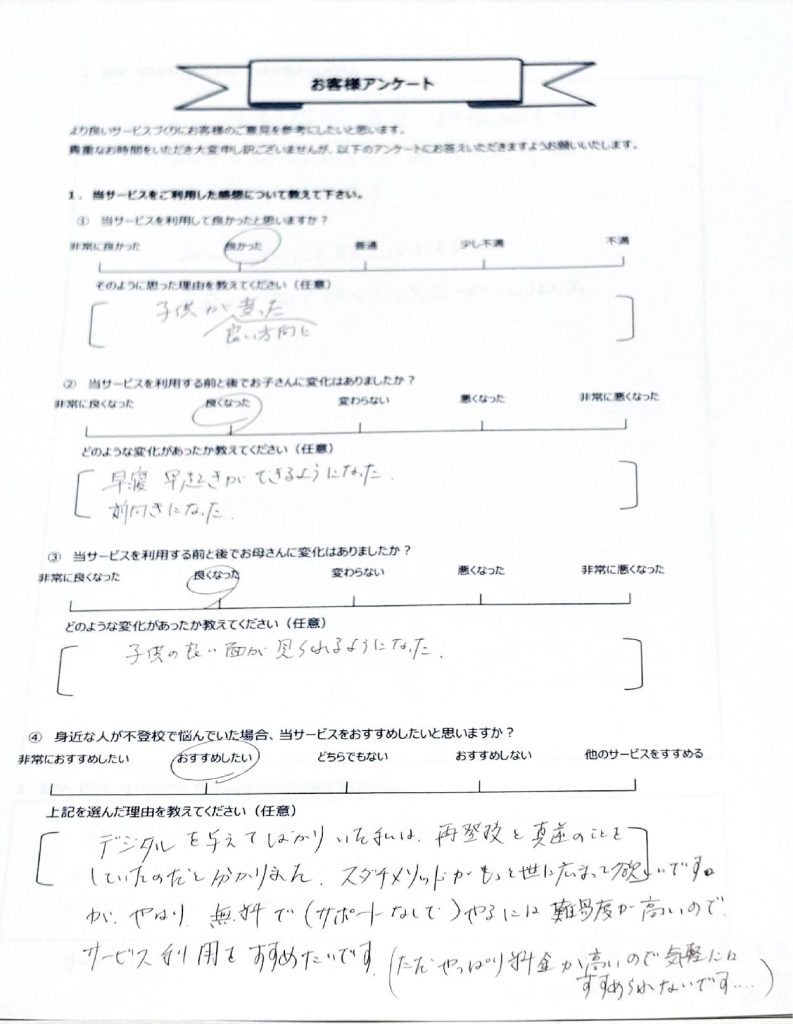 お客様アンケート
より良いサービスづくりにお客様のご意見を参考にしたいと思います。
貴重なお時間をいただき大変申し訳ございませんが、以下のアンケートにお答えいただきますようお願いいたします。
1．当サービスをご利用した感想について教えて下さい。
① 当サービスを利用して良かったと思いますか？
非常に良かった 良かった 普通 少し不満 不満
そのように思った理由を教えてください（任意）
子供が変った
良い方向に
② 当サービスを利用する前と後でお子さんに変化はありましたか？
非常に良くなった 良くなった 変わらない 悪くなった 非常に悪くなった
どのような変化があったか教えてください（任意）
早寝 早起きができるようになった.
前向きになった.
③ 当サービスを利用する前と後でお母さんに変化はありましたか？
非常に良くなった 良くなった 変わらない 悪くなった 非常に悪くなった
どのような変化があったか教えてください（任意）
子供の良い面が見られるようになった.
④ 身近な人が不登校で悩んでいた場合、当サービスをおすすめしたいと思いますか？
非常におすすめしたい おすすめしたい どちらでもない おすすめしない 他のサービスをすすめる
上記を選んだ理由を教えてください（任意）
デジタルを与えてばかりいた私は、再登校と真逆のことを
していたのだと分かりました. スダチメソッドがもっと世に広まって欲しいです。
が、やはり 無料で(サポートなしで)やるには難易度が高いので、
サービス利用をすすめたいです.
(ただやっぱり料金が高いので気軽には
すすめられないです....)